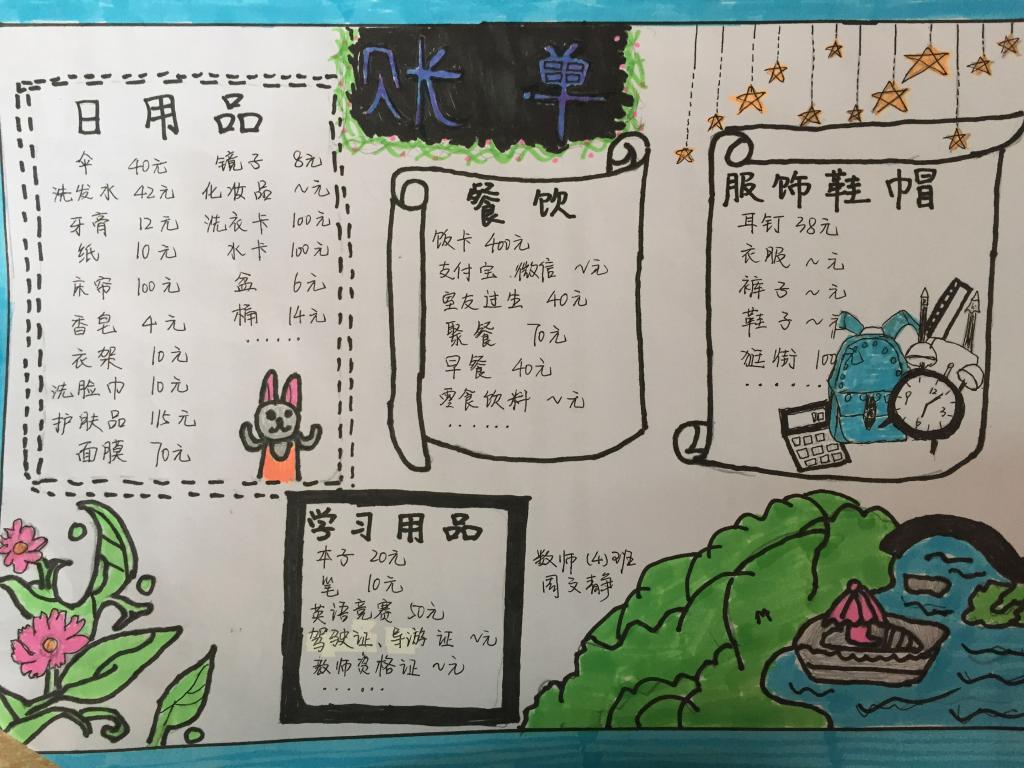 账单
日用品
伞 40元 镜子 8元
洗发水 42元 化妆品 ~元
牙膏 12元 洗衣卡 100元
纸 10元 水卡 100元
床帘 100元 盆 6元
香皂 4元 桶 14元
衣架 10元 ......
洗脸巾 10元
护肤品 115元
面膜 70元
餐饮
饭卡 400元
支付宝.微信 ~元
室友过生 40元
聚餐 70元
早餐 40元
零食饮料 ~元
......
服饰鞋帽
耳钉 38元
衣服 ~元
裤子 ~元
鞋子 ~元
逛街 100元
......
学习用品
本子 20元
笔 10元
英语竞赛 50元
驾驶证、导游证 ~元
教师资格证 ~元
......
数师(4)班
周文静